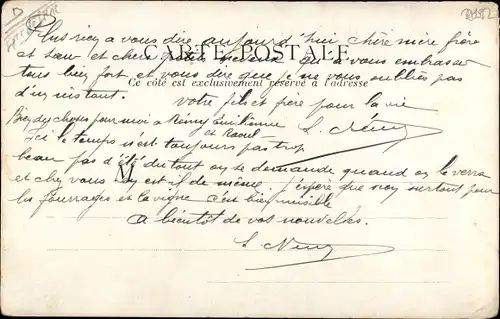 D
Plus rien a vous dire aujourd'hui chère mère frère
et sœur et chers petits neveux qu'a vous embrasser
CARTE POSTALE
tous bien fort et vous dire que je ne vous oublies pas
Ce côté est exclusivement réservé à l'adresse
d'un instant.
Votre fils et frère pour la vie
Bien des choses pour moi a Rémy Emilienne
et Raoul
Ici le temps n'est toujours pas trop
beau pas d'été du tout on se demande quand on le verra
M
et chez vous en est il de même. J'espère que non surtout pour
les fourrages et la vigne c'est bien nuisible
A bientôt de vos nouvelles.